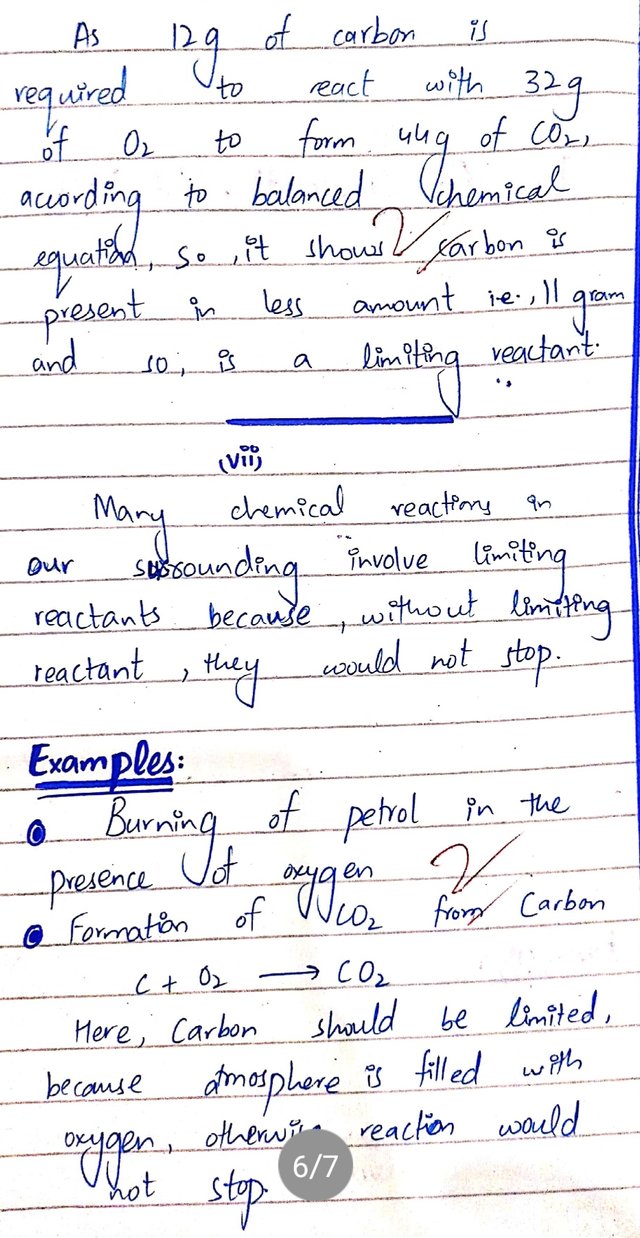 As 12g of carbon is
required to react with 32g
of O₂ to form 44g of CO₂,
according to balanced chemical
equation, so, it shows carbon is
present in less amount i.e., 11 gram
and so, is a limiting reactant.
(vii)
Many chemical reactions in
our surrounding involve limiting
reactants because, without limiting
reactant, they would not stop.
Examples:
Burning of petrol in the
presence of oxygen
Formation of CO₂ from Carbon
C + O₂ → CO₂
Here, Carbon should be limited,
because atmosphere is filled with
oxygen, otherwise reaction would
not stop.
6/7